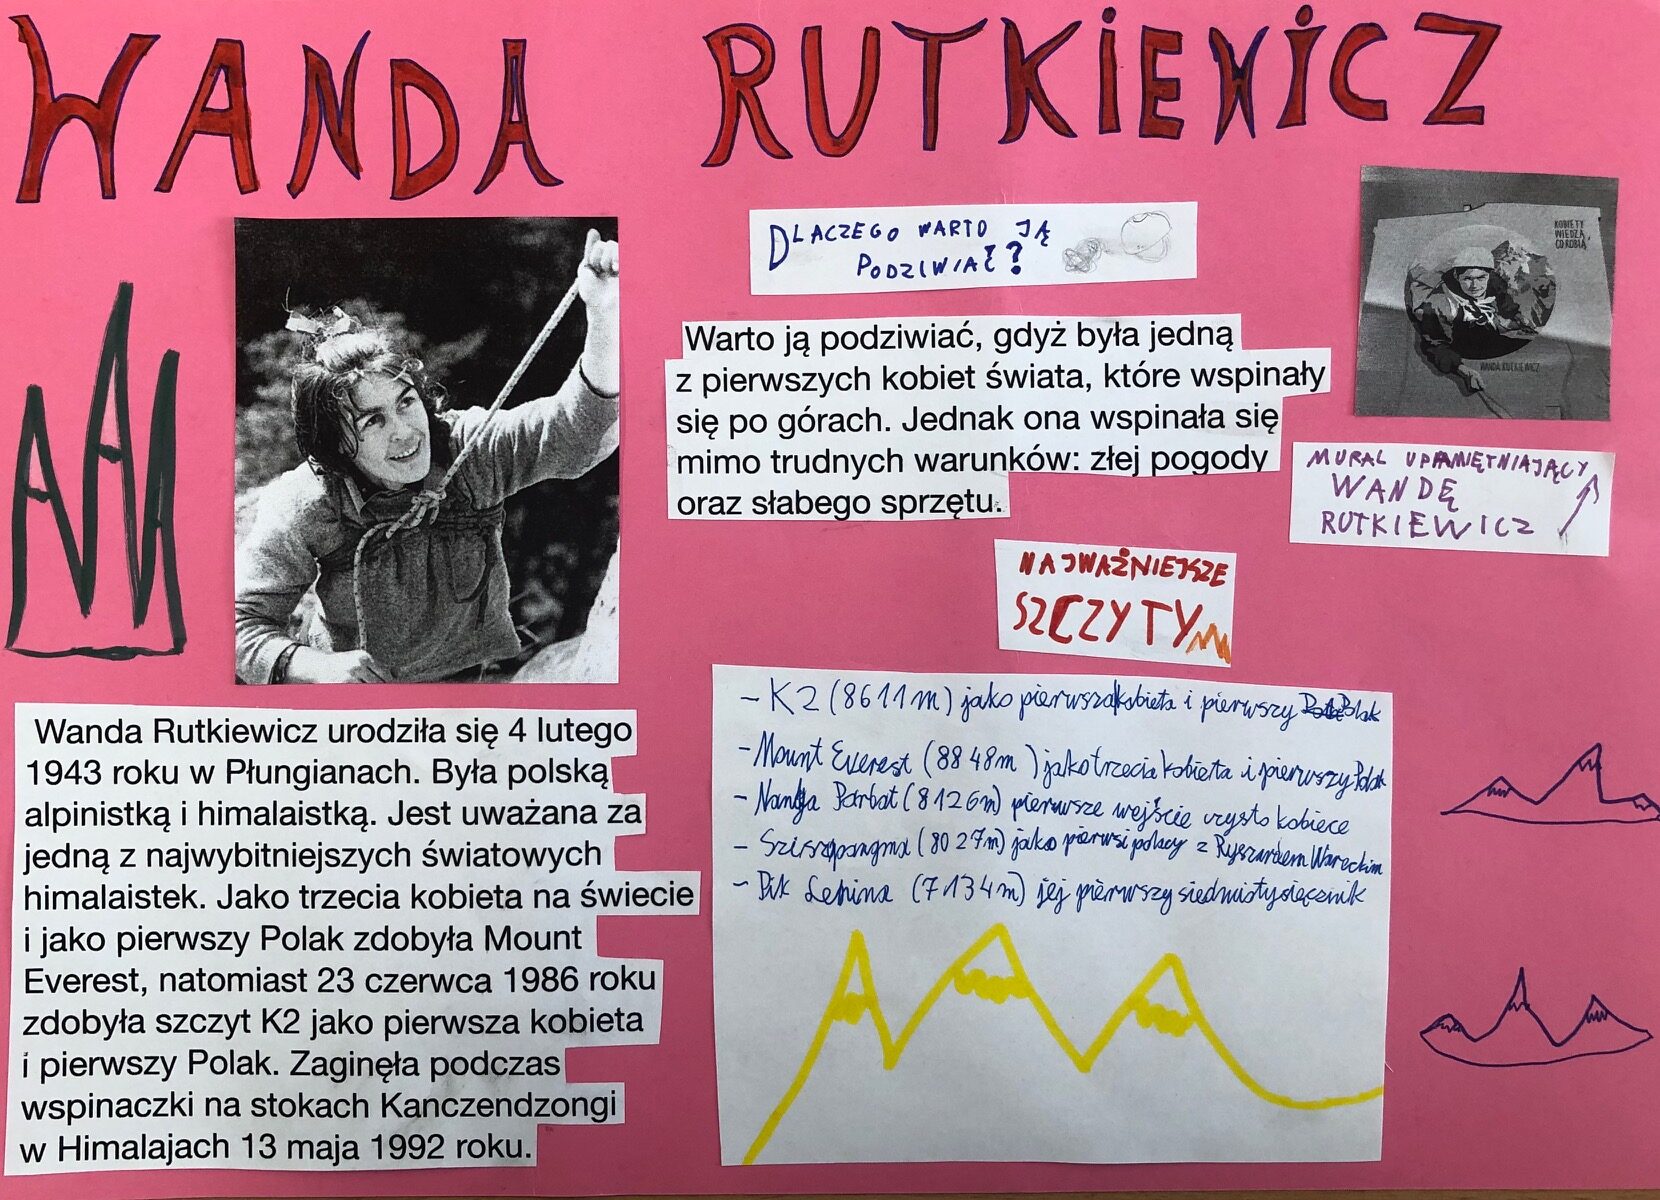 WANDA RUTKIEWICZ
DLACZEGO WARTO JĄ
PODZIWIAĆ?
Warto ją podziwiać, gdyż była jedną
z pierwszych kobiet świata, które wspinały
się po górach. Jednak ona wspinała się
mimo trudnych warunków: złej pogody
oraz słabego sprzętu.
KOBIETY
WIEDZĄ,
CO ROBIĄ
WANDA RUTKIEWICZ
MURAL UPAMIĘTNIAJĄCY
WANDĘ
RUTKIEWICZ
NAJWAŻNIEJSZE
SZCZYTY
Wanda Rutkiewicz urodziła się 4 lutego
1943 roku w Płungianach. Była polską
alpinistką i himalaistką. Jest uważana za
jedną z najwybitniejszych światowych
himalaistek. Jako trzecia kobieta na świecie
i jako pierwszy Polak zdobyła Mount
Everest, natomiast 23 czerwca 1986 roku
zdobyła szczyt K2 jako pierwsza kobieta
i pierwszy Polak. Zaginęła podczas
wspinaczki na stokach Kanczendzongi
w Himalajach 13 maja 1992 roku.
- K2 (8611m) jako pierwsza kobieta i pierwszy Polak
- Mount Everest (8848m) jako trzecia kobieta i pierwszy Polak
- Nanga Parbat (8126m) pierwsze wejście czysto kobiece
- (8027m) jako pierwsi polacy z Ryszardem Wareckim
- Pik Lenina (7134m) jej pierwszy siedmiotysięcznik